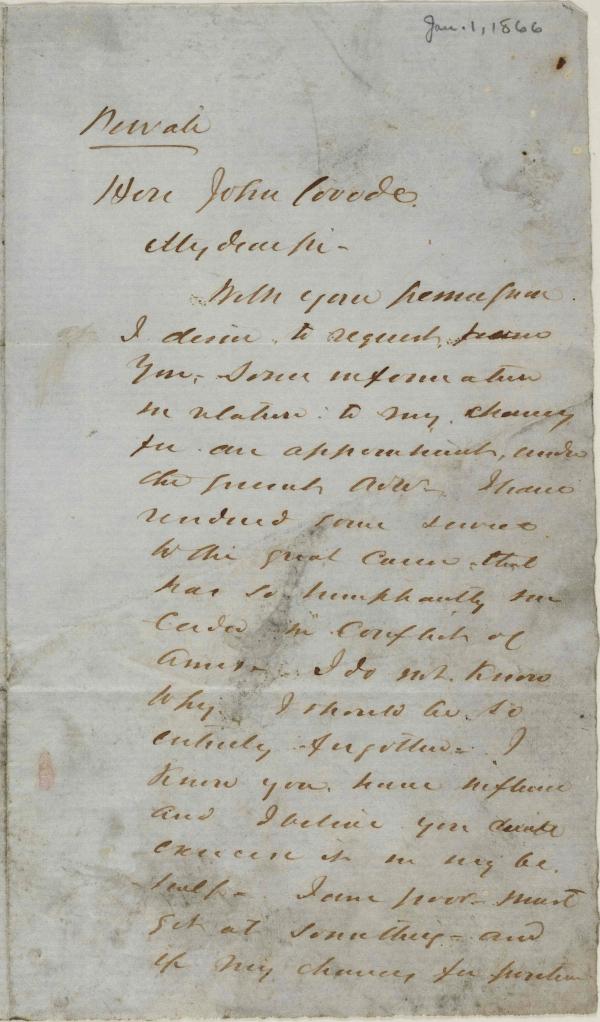 Jan. 1, 1866
Private
Hon John Covode.
My dear Sir -
With your permission
I desire to request from
You, some information
in relation to my chances
for an appointment, under
the present Adm - I have
rendered some service
to the great cause that
has so triumphantly suc
ceeded in Conflict of
Arms - I do not know
Why I should be so
entirely forgotten - I
know you have influence
and I believe you
exercise it in my be
half - I am poor - must
get at something - and
if my chances for position